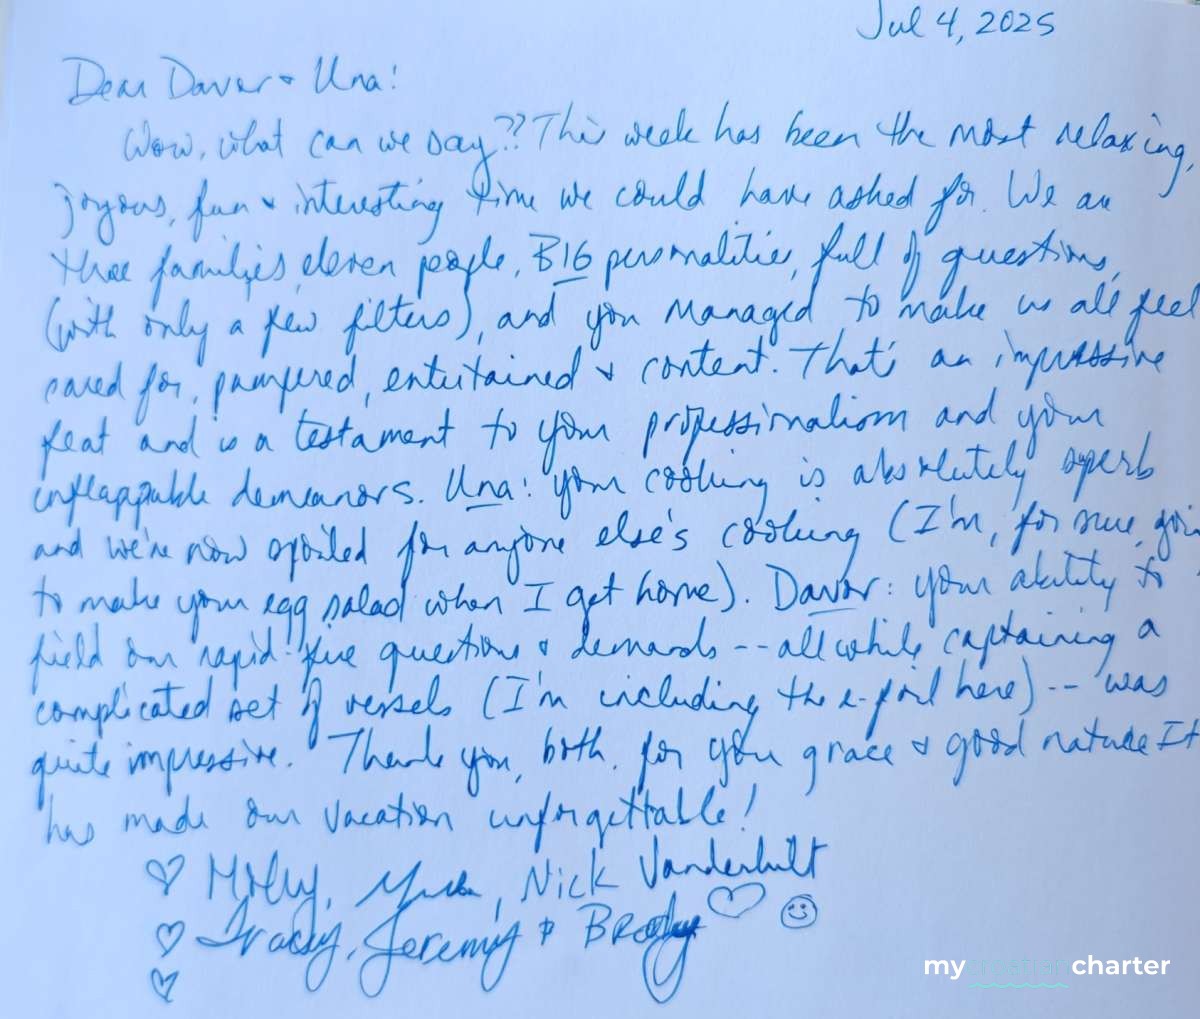 Jul 4, 2025
Dear Davor & Una!
Wow, what can we say?? This week has been the most relaxing,
joyous, fun & interesting time we could have asked for. We are
three families, eleven people, BIG personalities, full of questions,
(with only a few filters), and you managed to make us all feel
cared for, pampered, entertained & content. That's an impressive
feat and is a testament to your professionalism and your
unflappable demeanors. Una: your cooking is absolutely superb
and we're now spoiled for anyone else's cooking (I'm, for sure, goin
to make your egg salad when I get home). Davor: your ability to
field our rapid-fire questions & demands -- all while captaining a
complicated set of vessels (I'm including the e-foil here) -- was
quite impressive. Thank you, both, for you grace & good nature It
has made our vacation unforgettable!
♡ Molly, Nick Vanderbilt
♡ Tracey, Jeremy & Brody ♡ ☺
♡
mycroatiancharter